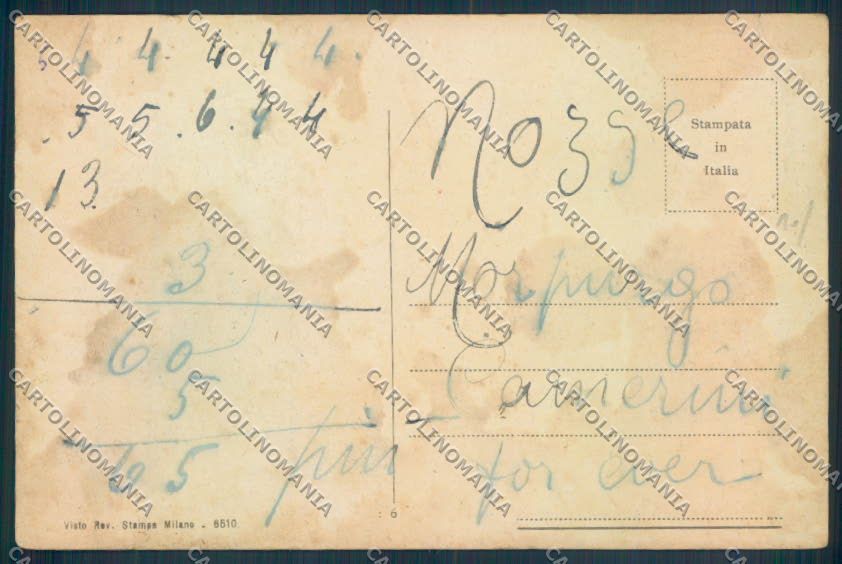 4 4. 4 4 4.
. 5 5 . 6 . 4 4
13.
3
60
5
65 più
Visto Rev. Stampa Milano - 6510
: 6
No 39
Stampata
in
Italia
Morpurgo
Camerini
for ever
CARTOLINOMANIA